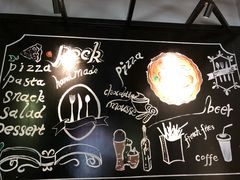 Rock
pizza
hand made
pasta
snack
salad
Dessert
pizza
chocolate
mousse
beer
french fries
coffe